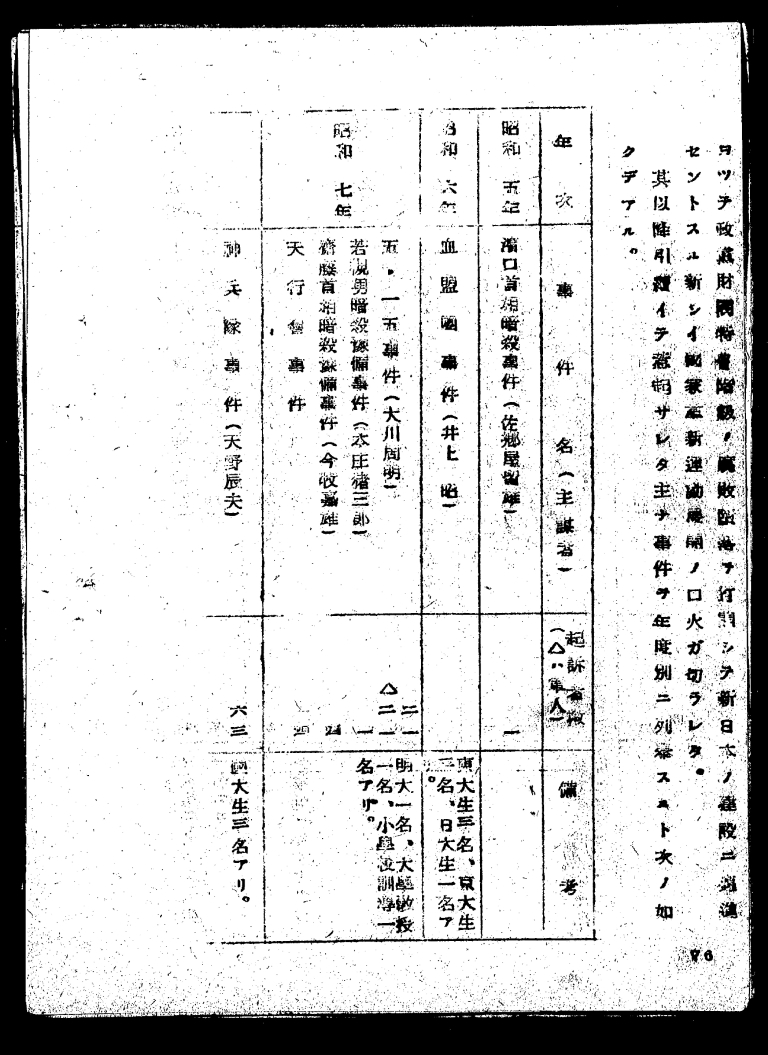 ヨツテ政黨財閥特權階級ノ腐敗墮落ヲ打開シテ新日本ノ建設ニ邁進
セントスル新シイ國家革新運動展開ノ口火ガ切ラレタ。
其以降引續イテ惹起サレタ主ナ事件ヲ年度別ニ列擧スルト次ノ如
クデアル。
年次
事件名(主謀者)
起訴者數
(△ハ軍人)
備考
昭和五年
濱口首相暗殺事件(佐郷屋留雄)
一
昭和六年
血盟團事件(井上昭)
東大生三名、京大生
三名、日大生一名ア
。
昭和七年
五・一五事件(大川周明)
二一
△二一
明大一名、大學教授
一名、小學校訓導一
名アリ。
若槻男暗殺豫備事件(本庄猪三郎)
一
齋藤首相暗殺豫備事件(今牧嘉雄)
四
天行會事件
四
神兵隊事件(天野辰夫)
六三
國大生三名アリ。
76